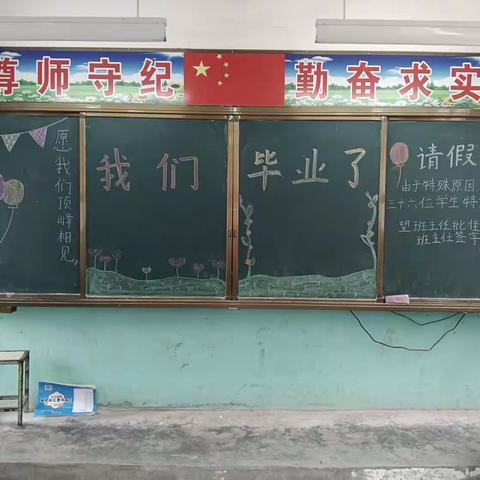 尊师守纪
勤奋求实
愿我们顶峰相见
我们
毕业了
请假
由于特殊原因
三十六位学生特
望班主任批准
班主任签字